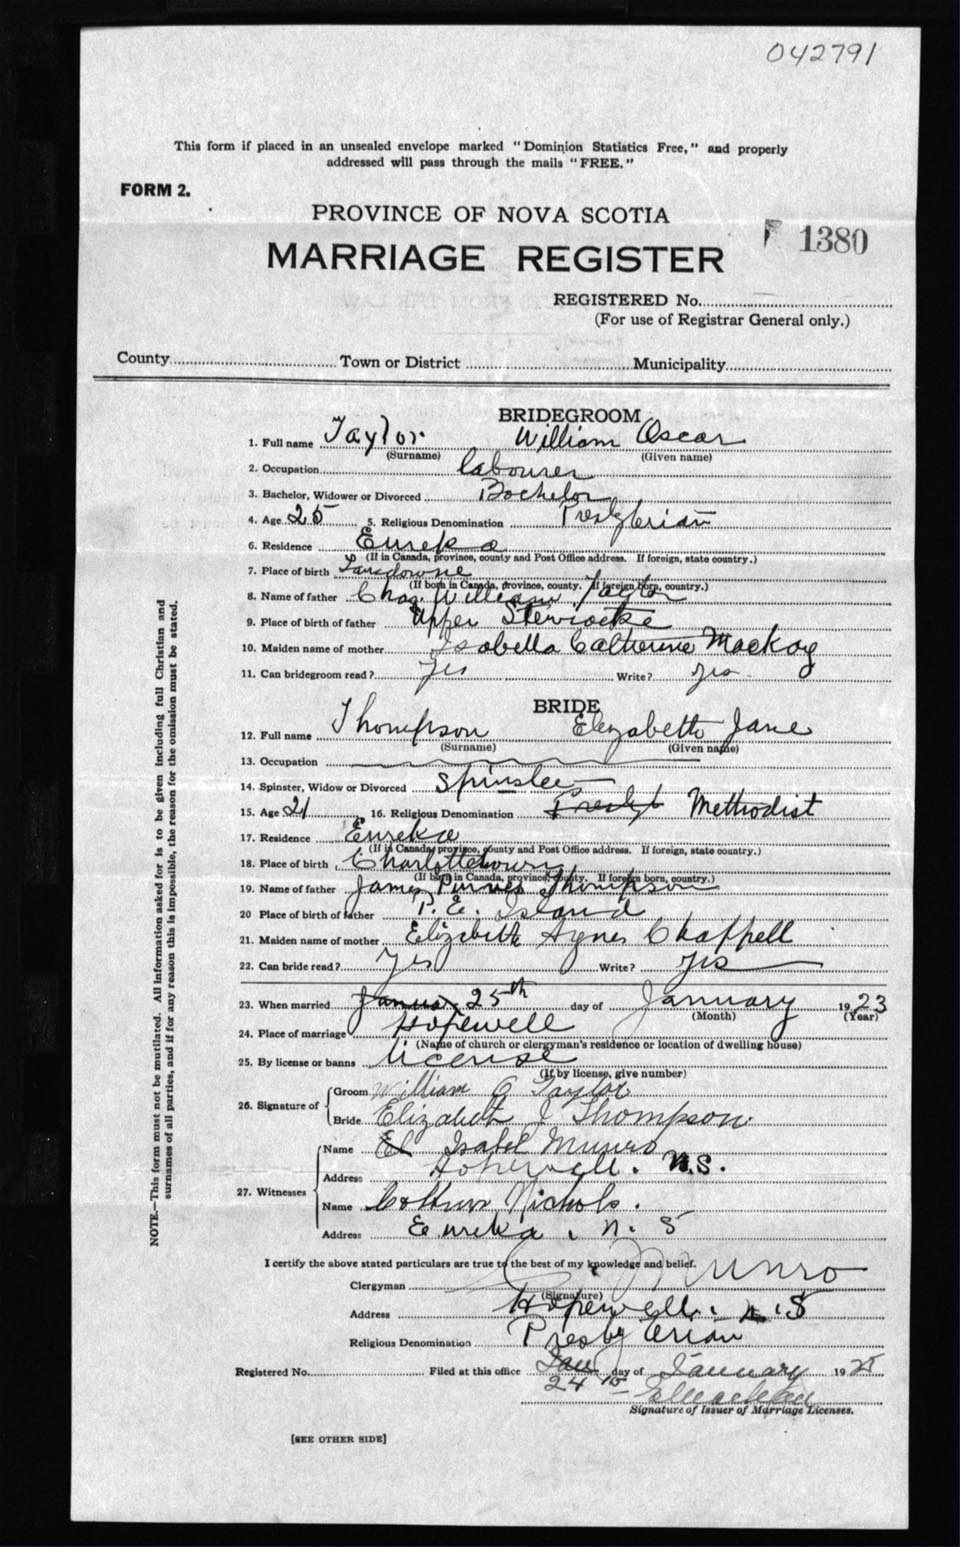 042791
This form if placed in an unsealed envelope marked "Dominion Statistics Free," and properly
addressed will pass through the mails "FREE."
FORM 2.
PROVINCE OF NOVA SCOTIA
1380
MARRIAGE REGISTER
REGISTERED No.
(For use of Registrar General only.)
County Town or District Municipality
BRIDEGROOM
1. Full name Taylor William Oscar
(Surname) (Given name)
2. Occupation labourer
3. Bachelor, Widower or Divorced Bachelor
4. Age 25 5. Religious Denomination Presbyterian
6. Residence Eureka
(If in Canada, province, county and Post Office address. If foreign, state country.)
7. Place of birth Lansdowne
(If born in Canada, province, county. If foreign born, country.)
8. Name of father Chas. William Taylor
9. Place of birth of father Upper Stewiacke
10. Maiden name of mother Isabella Catherine MacKay
11. Can bridegroom read? Yes Write? yes
BRIDE
12. Full name Thompson Elizabeth Jane
(Surname) (Given name)
13. Occupation
14. Spinster, Widow or Divorced Spinster
15. Age 21 16. Religious Denomination Presbyt Methodist
17. Residence Eureka
(If in Canada, province, county and Post Office address. If foreign, state country.)
18. Place of birth Charlottetown
(If born in Canada, province, county. If foreign born, country.)
19. Name of father James Purves Thompson
20 Place of birth of father P. E. Island
21. Maiden name of mother Elizabeth Agnes Chappell
22. Can bride read? Yes Write? Yes
23. When married January 25th day of January 1923
(Month) (Year)
24. Place of marriage Hopewell
(Name of church or clergyman's residence or location of dwelling house)
25. By license or banns license
(If by license, give number)
26. Signature of Groom William O Taylor
Bride Elizabeth J Thompson
27. Witnesses
Name El Isabel Munro
Address Hopewell. N.S.
Name Nichols.
Address Eureka, N. S
I certify the above stated particulars are true to the best of my knowledge and belief.
Clergyman Munro
(Signature)
Address Hopewell. N. S
Religious Denomination Presbyterian
Registered No. Filed at this office Jan 24th day of January 192
Signature of Issuer of Marriage Licenses.
[SEE OTHER SIDE]
NOTE.—This form must not be mutilated. All information asked for is to be given including full Christian and
surnames of all parties, and if for any reason this is impossible, the reason for the omission must be stated.